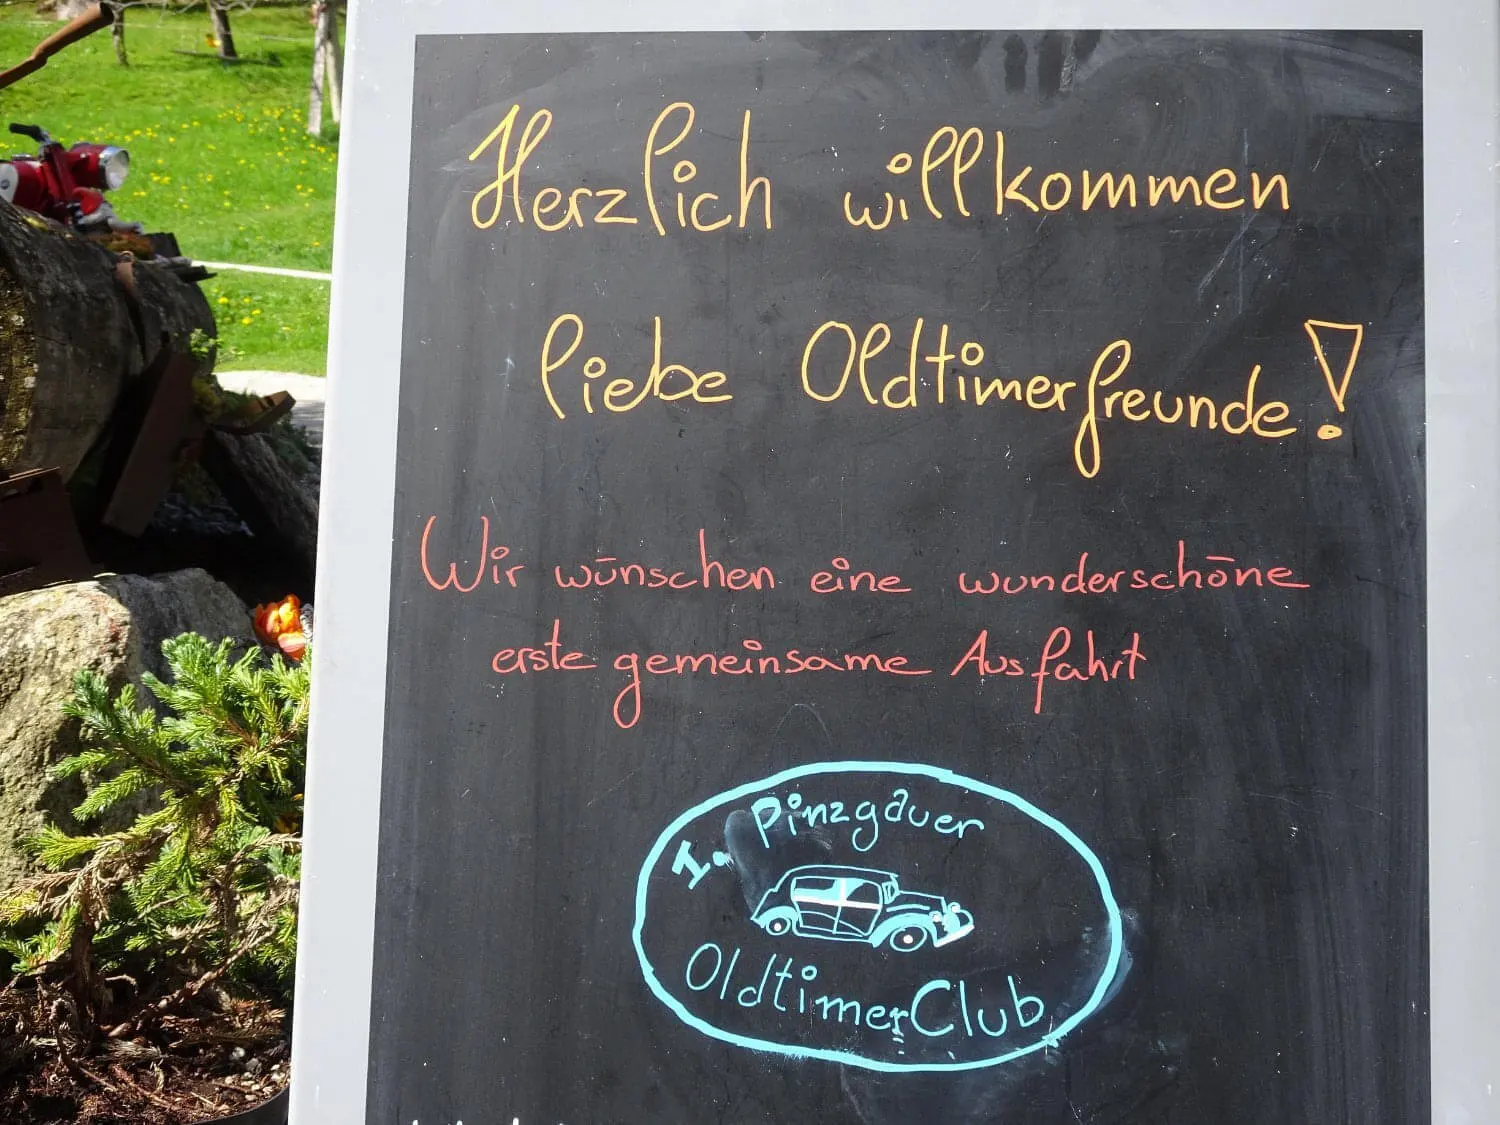 Herzlich willkommen
liebe Oldtimerfreunde!
Wir wünschen eine wunderschöne
erste gemeinsame Ausfahrt
I. Pinzgauer
OldtimerClub